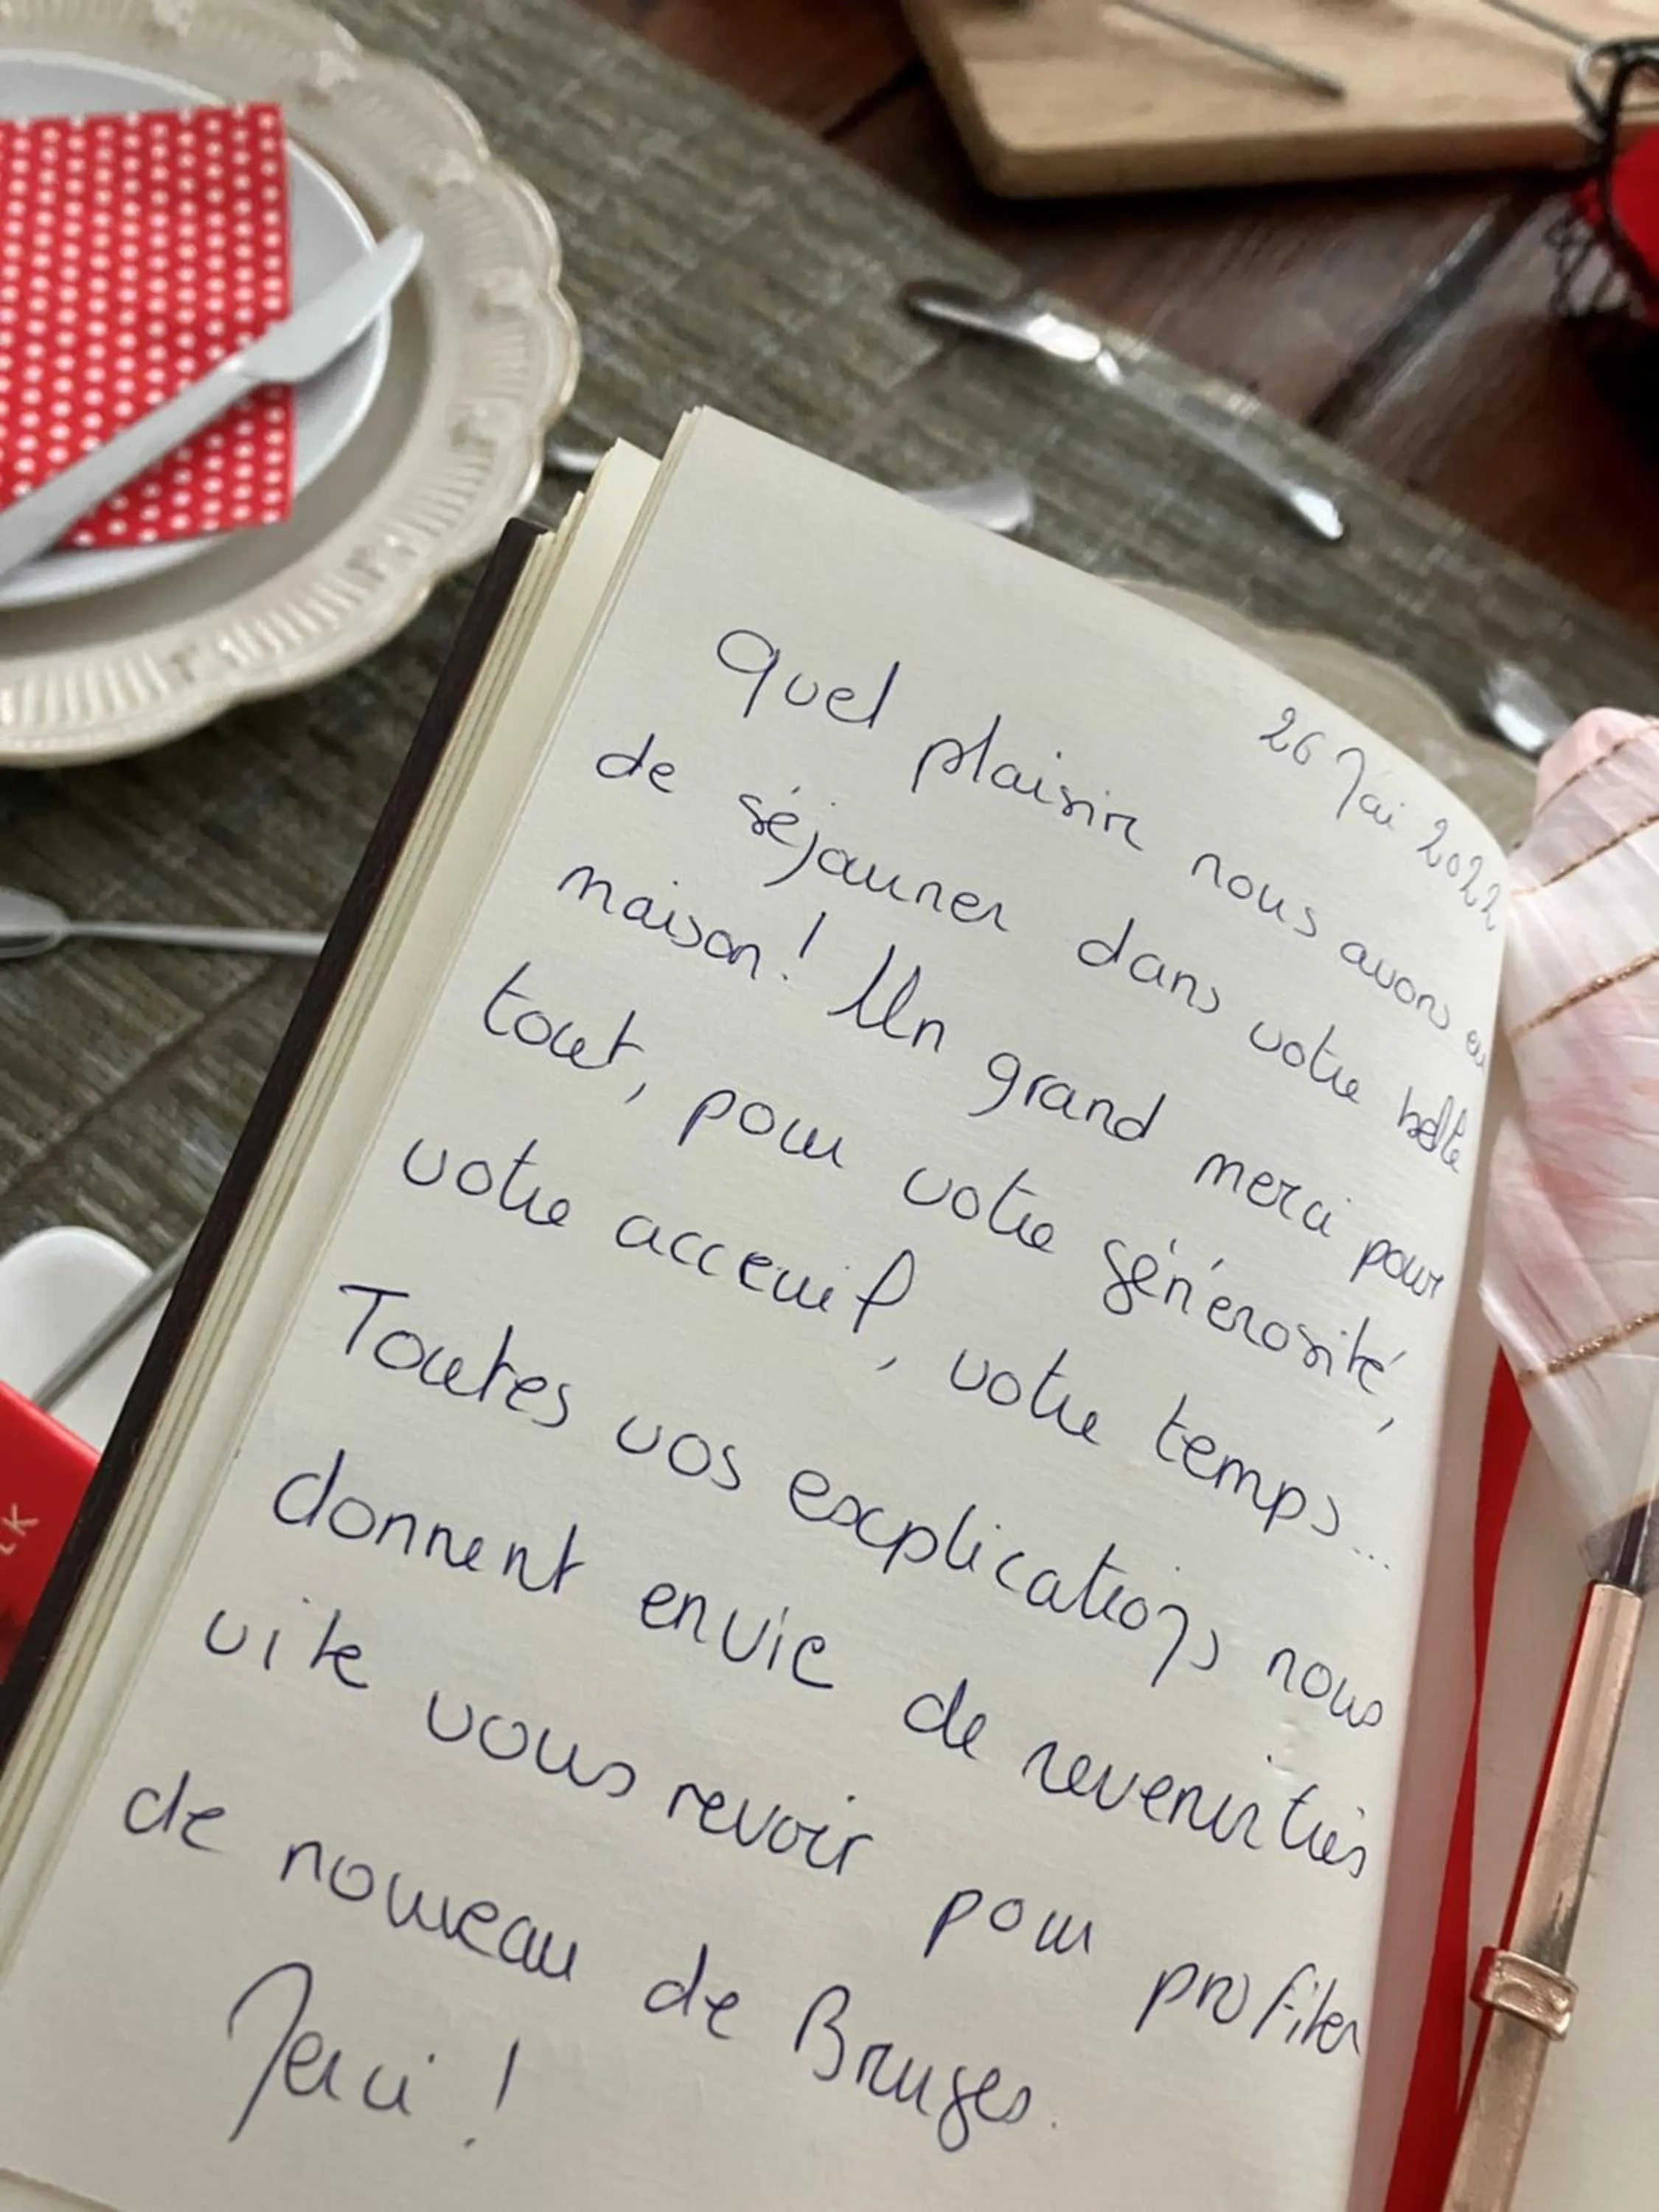 26 Mai 2022
Quel plaisir nous avons eu
de séjourner dans votre belle
maison! Un grand merci pour
tout, pour votre générosité,
votre acceuil, votre temps...
Toutes vos explications nous
donnent envie de revenir très
vite vous revoir pour profiter
de nouveau de Bruges.
Merci !
LK